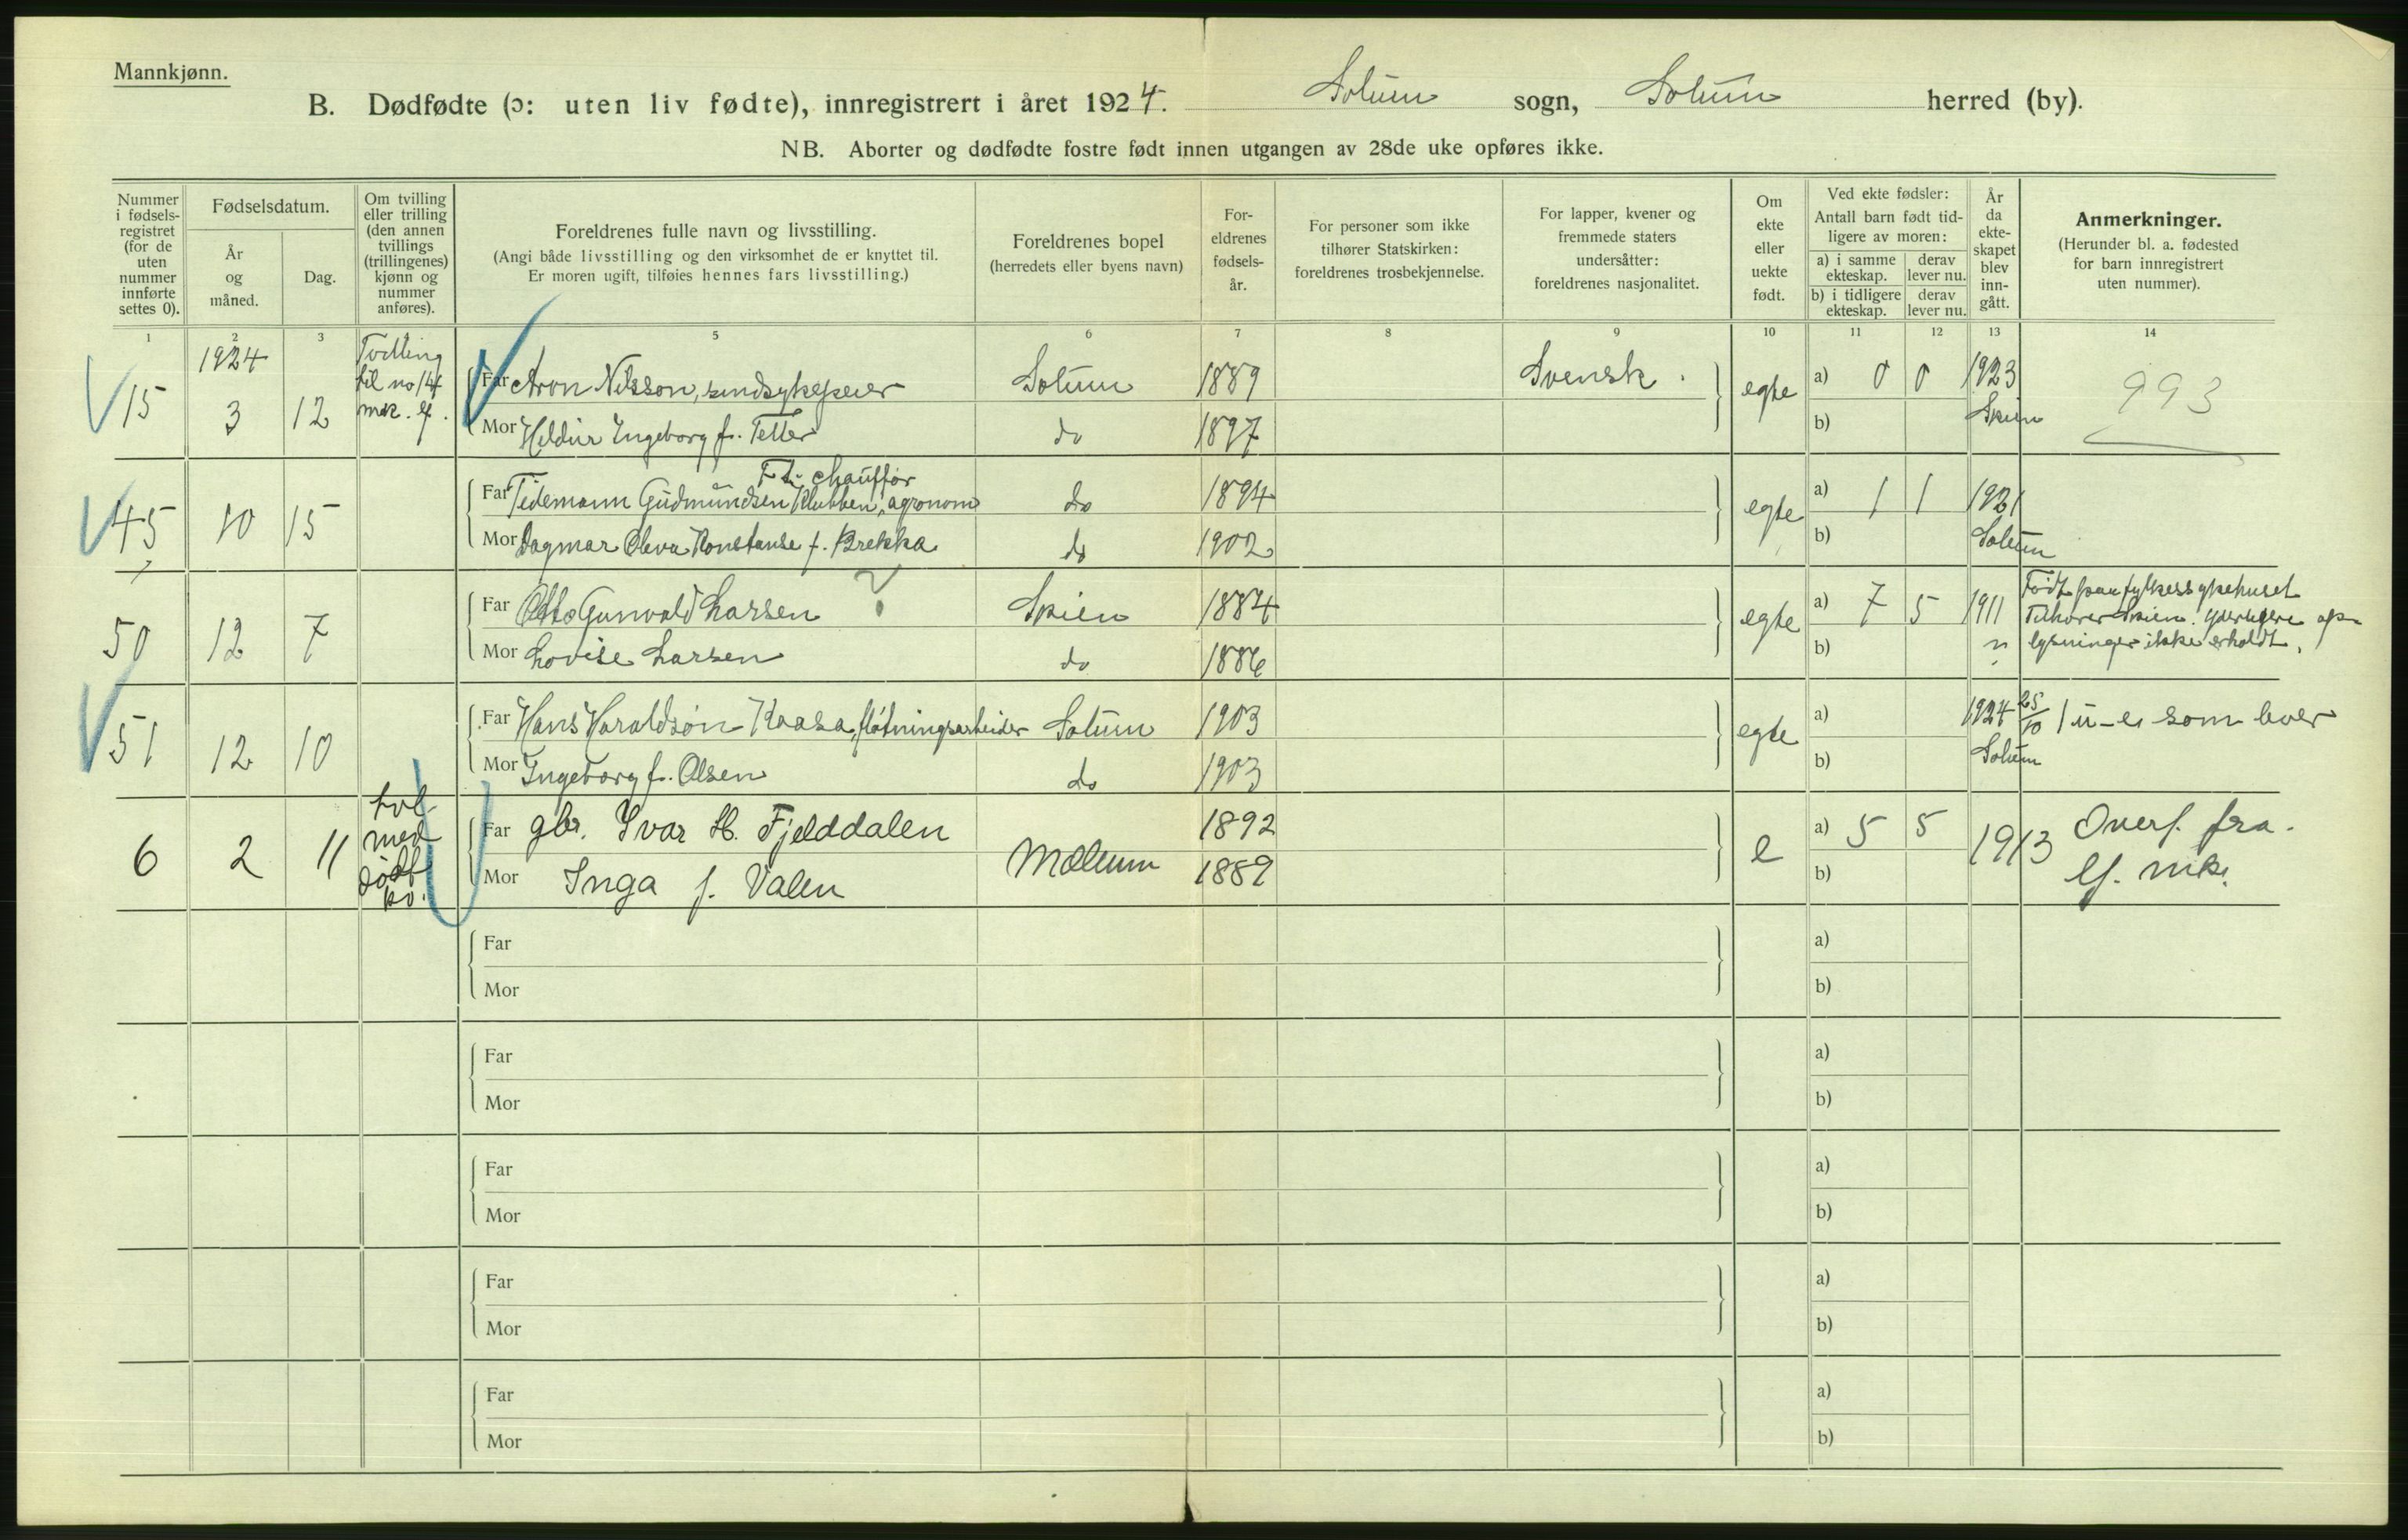 Mannkjønn.
B. Dødfødte (ɔ: uten liv fødte), innregistrert i året 1924. Solum sogn, Solum herred (by).
NB. Aborter og dødfødte fostre født innen utgangen av 28de uke opføres ikke.
Nummer i fødsels-registret (for de uten nummer innførte settes 0).
Fødselsdatum.
År og måned.
Dag.
Om tvilling eller trilling (den annen tvillings (trillingenes) kjønn og nummer anføres).
Foreldrenes fulle navn og livsstilling.
(Angi både livsstilling og den virksomhet de er knyttet til.
Er moren ugift, tilføies hennes fars livsstilling.)
Foreldrenes bopel
(herredets eller byens navn)
For-eldrenes fødsels-år.
For personer som ikke tilhører Statskirken: foreldrenes trosbekjennelse.
For lapper, kvener og fremmede staters undersåtter: foreldrenes nasjonalitet.
Om ekte eller uekte født.
Ved ekte fødsler:
Antall barn født tid-ligere av moren:
a) i samme ekteskap.
derav lever nu.
b) i tidligere ekteskap.
derav lever nu.
År da ekte-skapet blev inn-gått.
Anmerkninger.
(Herunder bl. a. fødested for barn innregistrert uten nummer).
1 2 3 5 6 7 8 9 10 11 12 13 14
1924
15 3 12 Tvilling til no 14 mk.
Far Aron Nilsson, sindsykepleier Solum 1889 Svensk. egte a) 0 0 1923 993
Mor Hildur Ingeborg f. Teller do 1897 b) Skien
Ft. chauffør
45 10 15 Far Tidemann Gudmundsen Klubben, agronom do 1894 egte a) 1 1 1921
Mor Dagmar Oleva Konstanse f. Brekka do 1902 b) Solum
50 12 7 Far Otto Gunvald Larsen ? Skien 1884 egte a) 7 5 1911 Født paa fylkessykehuset
Tilhører Skien. Yderligere op-
Mor Lovise Larsen do 1886 b) lysninger ikke erholdt.
51 12 10 Far Hans Haraldsøn Kaasa, fløtningsarbeider Solum 1903 egte a) 1924 25/10 1 u-e som lever
Mor Ingeborg f. Olsen do 1903 b) Solum
6 2 11 tvil. med dødf. kv.
Far gbr. Ivar H. Fjelddalen Mælum 1892 e a) 5 5 1913 Overf. fra
Mor Inga f. Valen 1889 b) lf. mk.
Far a)
Mor b)
Far a)
Mor b)
Far a)
Mor b)
Far a)
Mor b)
Far a)
Mor b)